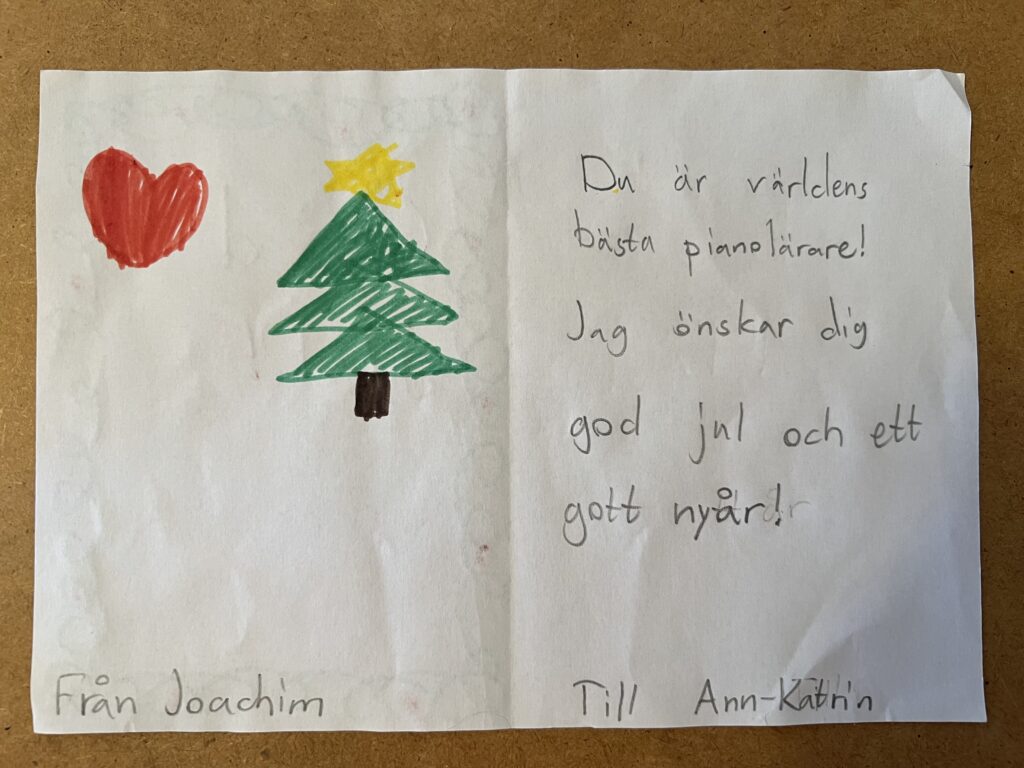 Du är världens
bästa pianolärare!
Jag önskar dig
god jul och ett
gott nyår!
Från Joachim
Till Ann-Katrin